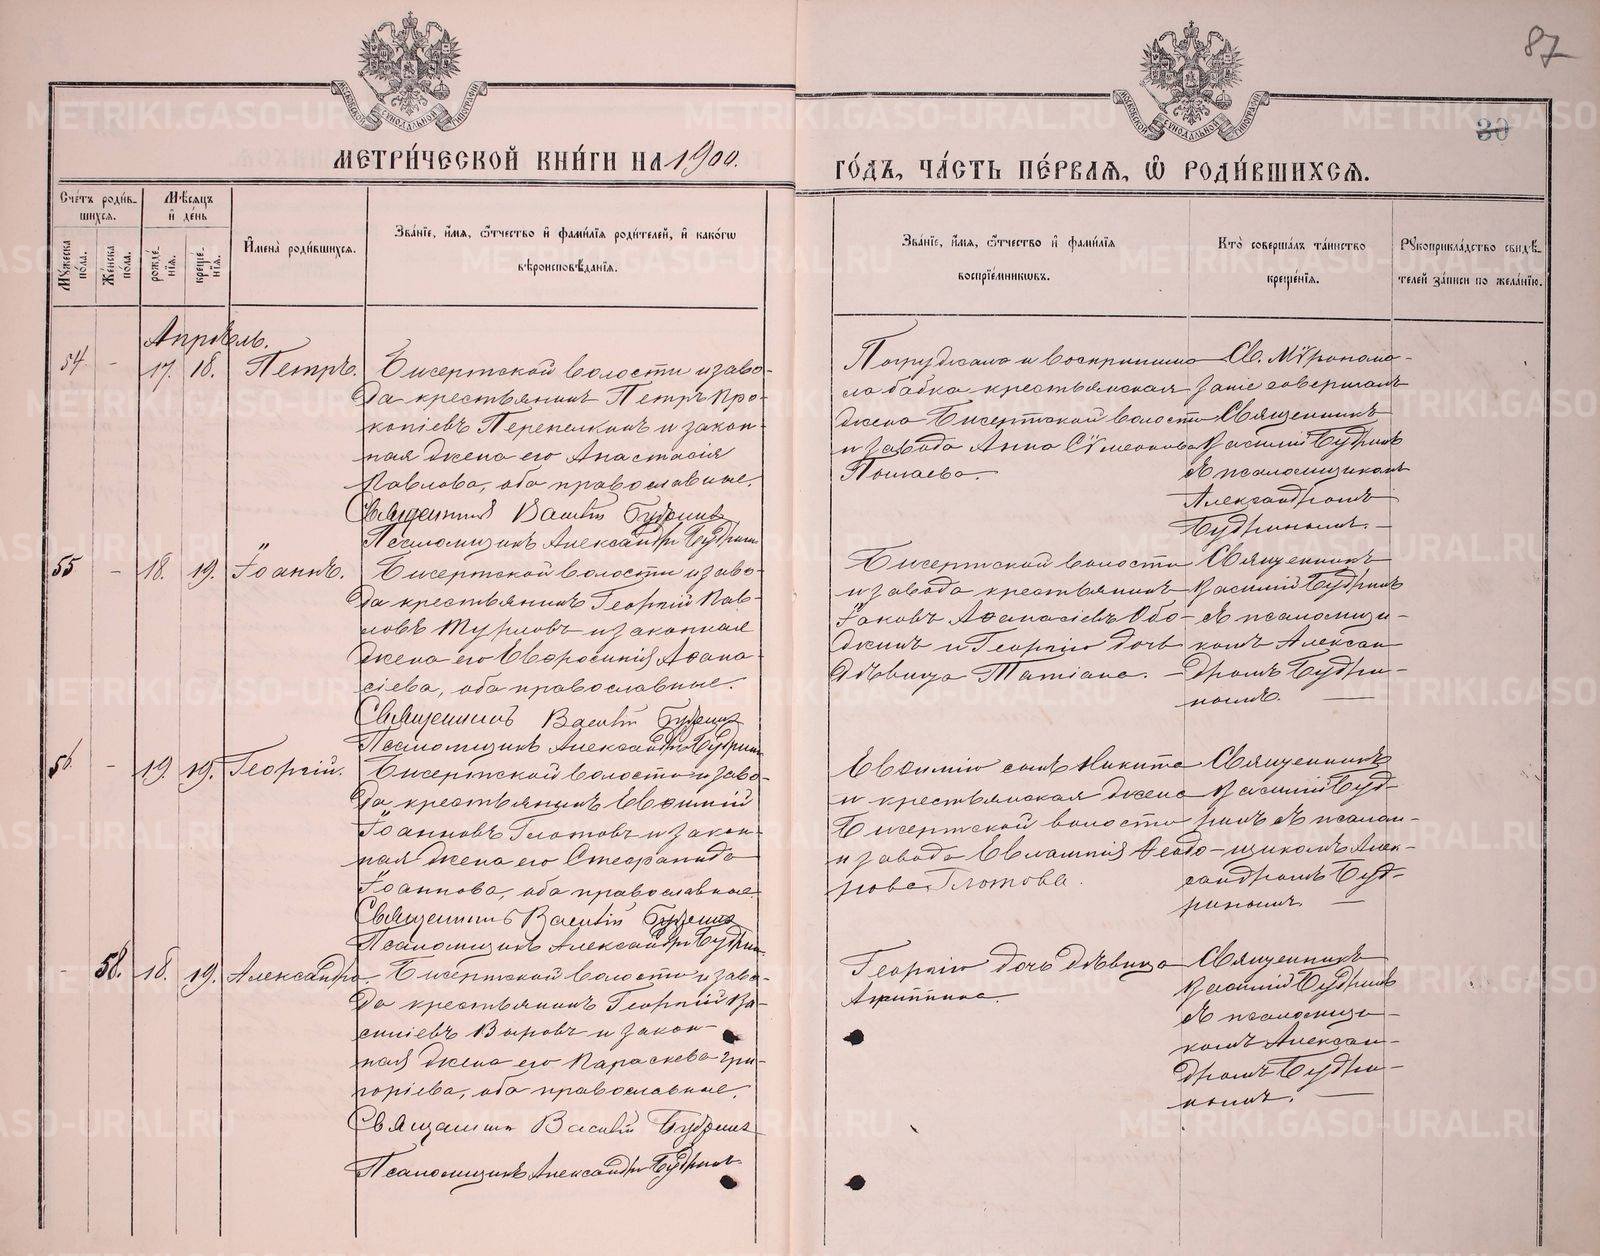 87
30
МЕТРИ́ЧЕСКОЙ КНИ́ГИ НА 1900.
ГО́ДЪ, ЧА́СТЬ ПЕ́РВАѦ, Ѡ҆ РОДИ́ВШИХСѦ.
Сче́тъ роди́в-
шихсѧ.
Мѣ́сѧцъ
и҆ де́нь
Мꙋ́жеска по́ла.
Же́нска по́ла.
рожде́-
нїѧ.
креще́-
нїѧ.
И҆мена̀ роди́вшихсѧ.
Зва́нїе, и҆́мѧ, ѻ҆́тчество и҆ фами́лїѧ роди́телей, и҆ како́гѡ
вѣроисповѣ́данїѧ.
Зва́нїе, и҆́мѧ, ѻ҆́тчество и҆ фами́лїѧ
воспрїе́мниковъ.
Кто̀ соверша́лъ та́инство
креще́нїѧ.
Рꙋкоприкла́дство свидѣ́-
телей за́писи по жела́нїю.
Апрѣль.
54 - 17. 18. Петръ.
Бисертской волости и заво-
да крестьянинъ Петръ Про-
копіевъ Перепелкинъ и закон-
ная жена его Анастасія
Павлова, оба православные.
Священникъ Василій Будринъ
Псаломщикъ Александръ Будринъ
Погружала и воспринима-
ла бабка крестьянская
жена Бисертской волости
и завода Анна Сѵмеонова
Св. Мѵропома-
заніе совершалъ
Священникъ
Василій Будринъ
съ псаломщикомъ
Александромъ
Будринымъ. —
55 - 18. 19. Іоаннъ.
Бисертской волости и заво-
да крестьянинъ Георгій Пав-
ловъ Турловъ и законная
жена его Евфросинія Афана-
сіева, оба православные.
Священникъ Василій Будринъ
Псаломщикъ Александръ Будринъ
Бисертской волости
и завода крестьянинъ
Іаковъ Афанасіевъ Обо-
жинъ и Георгію дочь
дѣвица Татіана. —
Священникъ
Василій Будринъ
съ псаломщи-
комъ Алексан
дромъ Будри-
нымъ. —
56 - 19. 19. Георгій.
Бисертской волости и заво-
да крестьянинъ Евфимій
Іоанновъ Глотовъ и закон-
ная жена его Стефанида
Іоаннова, оба православные
Священникъ Василій Будринъ
Псаломщикъ Александръ Будринъ
Евфимію сынъ Никита
и крестьянская жена
Бисертской волости
и завода Евлампія Феодо-
рова Глотова.
Священникъ
Василій Буд-
ринъ съ псалом-
щикомъ Алек-
сандромъ Буд-
ринымъ. —
- 58. 18. 19. Александра.
Бисертской волости и заво-
да крестьянинъ Георгій Ва-
силіевъ Выровъ и закон-
ная жена его Параскева Гри-
горіева, оба православные.
Священникъ Василій Будринъ
Псаломщикъ Александръ Будринъ
Георгію дочь дѣвица
Агриппина.
Священникъ
Василій Будринъ
съ псаломщи-
комъ Алексан-
дромъ Будри-
нымъ. —
METRIKI.GASO-URAL.RU